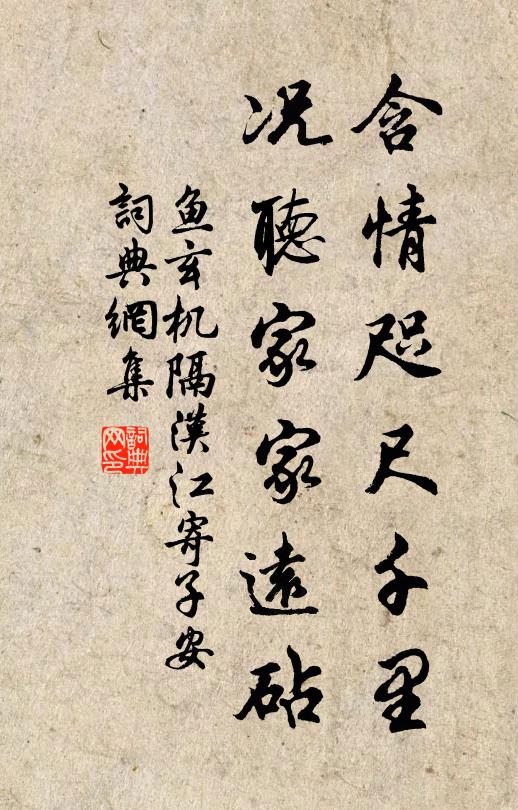 含情咫尺千里
况聽家家遠砧
鱼玄机隔漢江寄子安
詞典網集
詞典
网印